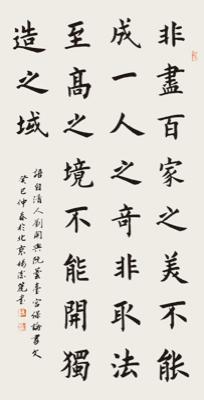 非盡百家之美不能
成一人之奇非取法
至高之境不能開獨
造之域
語自清人劉開與阮芸臺宮保論書文
癸巳仲春於北京